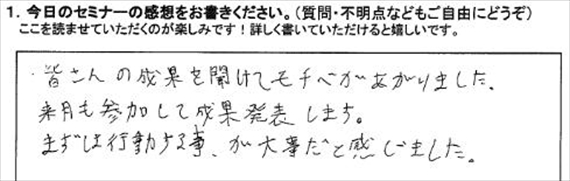 1. 今日のセミナーの感想をお書きください。（質問・不明点などもご自由にどうぞ）
ここを読ませていただくのが楽しみです！詳しく書いていただけると嬉しいです。
・皆さんの成果を聞けてモチベがあがりました。
来月も参加して成果発表します。
まずは行動する事、が大事だと感じました。